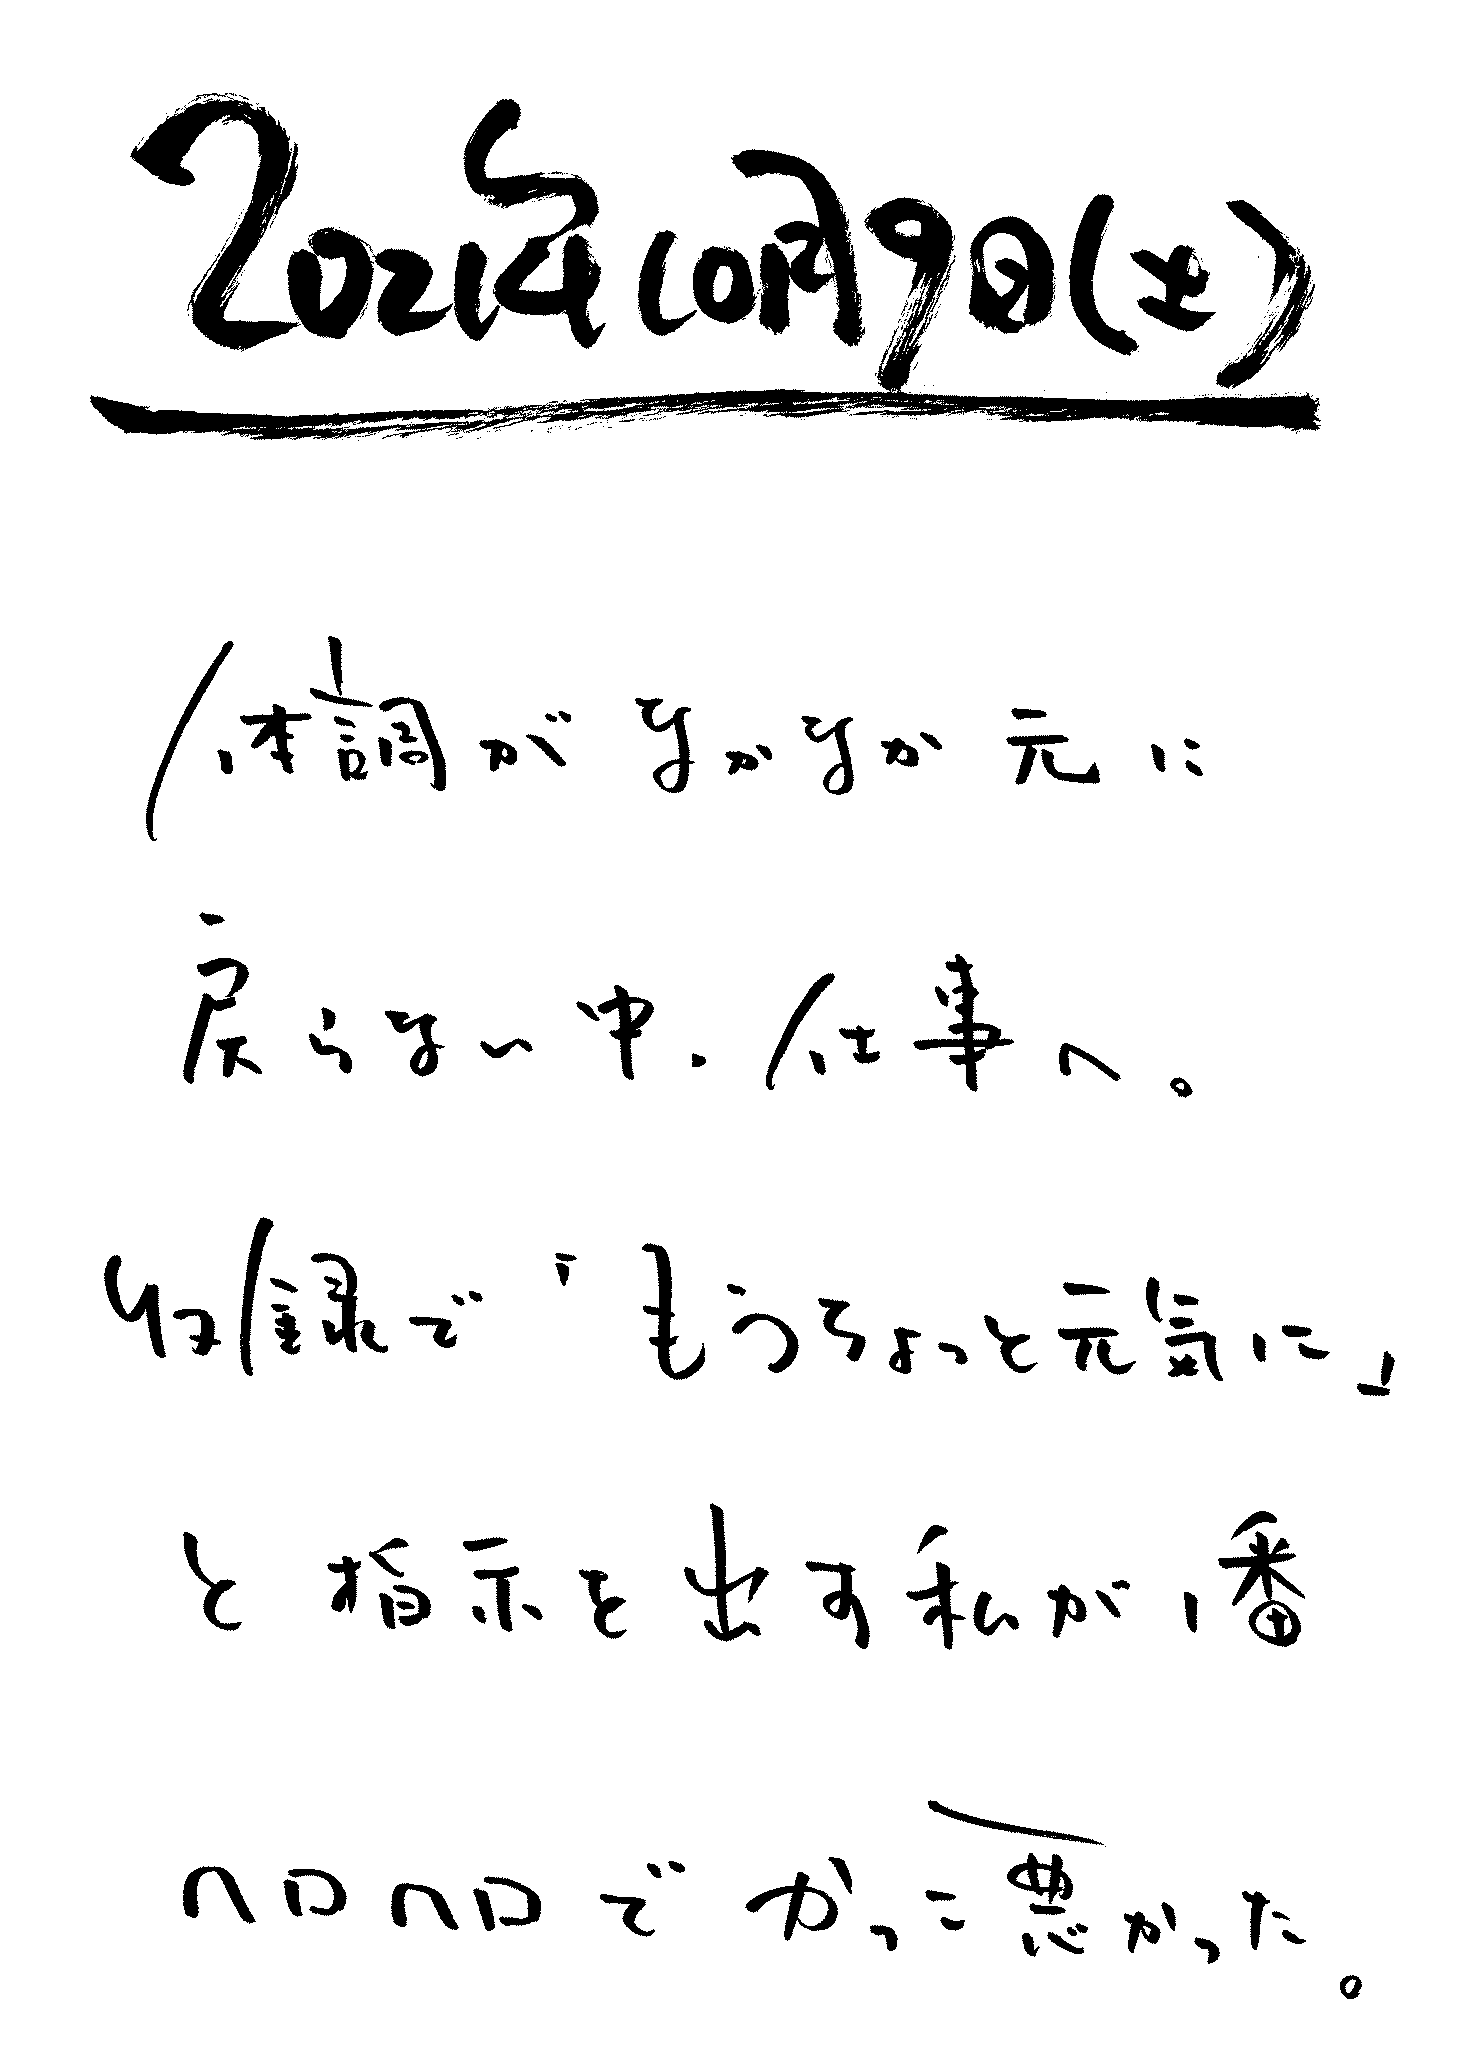 2021年10月9日(土)
体調がなかなか元に
戻らない中、仕事へ。
収録で「もうちょっと元気に」
と指示を出す私が1番
ヘロヘロでかっこ悪かった。